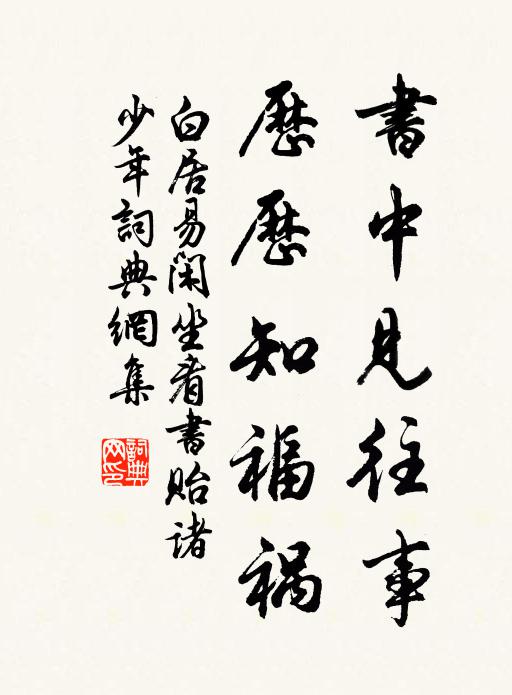 書中見往事
歷歷知福祸
白居易閑坐看書貽诸
少年詞典網集
詞典
网印